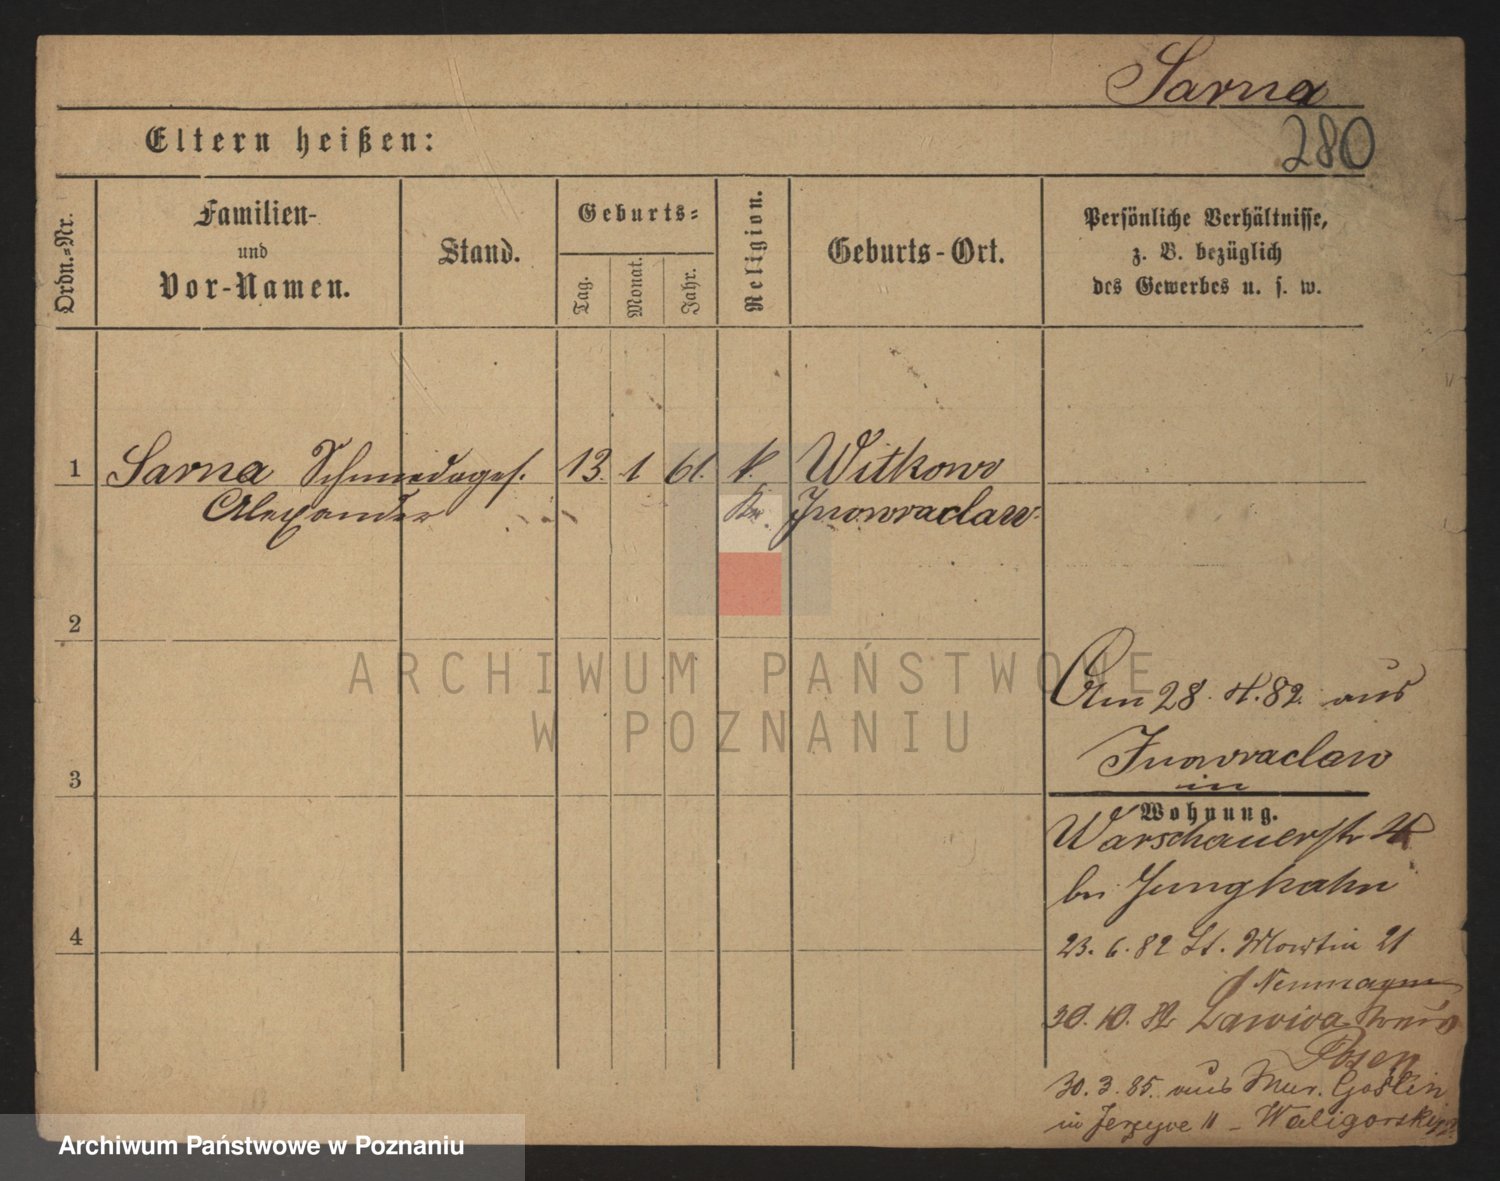 Sarna
280
Eltern heißen:
Ordn.-Nr.
Familien-
und
Vor-Namen.
Stand.
Geburts-
Tag.
Monat.
Jahr.
Religion.
Geburts-Ort.
Persönliche Verhältnisse,
z. B. bezüglich
des Gewerbes u. s. w.
1 Sarna Schmiedeges. 13. 1 61. k. Witkowo
Alexander Kr. Inowraclaw
2
3
4
Am 28. 4. 82. aus
Inowraclaw
in
Wohnung.
Warschauerstr 4
bei Junghahn
23. 6. 82 St. Martin 21
30. 10. 82 Zawica Kreis
Posen
30. 3. 85. aus Mur. Goslin
in Jerzyce 11 - Waligorski
ARCHIWUM PAŃSTWOWE
W POZNANIU
Archiwum Państwowe w Poznaniu